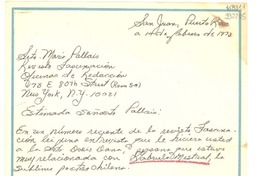 San Juan, Puerto Rico
a 14 de febrero de 1978
Srta. Mario Pallais
Revista
Oficinas de Redacción
E 80th Street
New York, N.Y. 10021
Estimada señorita Pallais:
En un número reciente de la revista
leí una entrevista que le hiciera usted
a la Srta. Doris Dana, persona que estuvo
muy relacionada con Gabriela Mistral, la
sublime poetisa chilena.